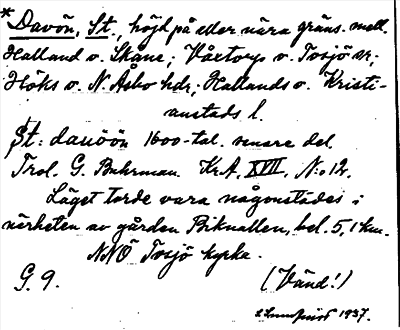 *Davön, St., höjd på eller nära gräns. mell.
Halland o. Skåne; Våxtorps o. Tosjö sr;
Höks o. N Åsbo hdr; Hallands o. Kristi-
anstads l.
St: dauöön 1600-tal. senare del.
Trol. G. Buhrman. Kr.A, XVII, N:o 12.
Läget torde vara någonstädes i
närheten av gården Biknallen, bel. 5,1 km.
NNÖ Tosjö kyrka.
G. 9. (Vänd!)
Lundquist 1937.